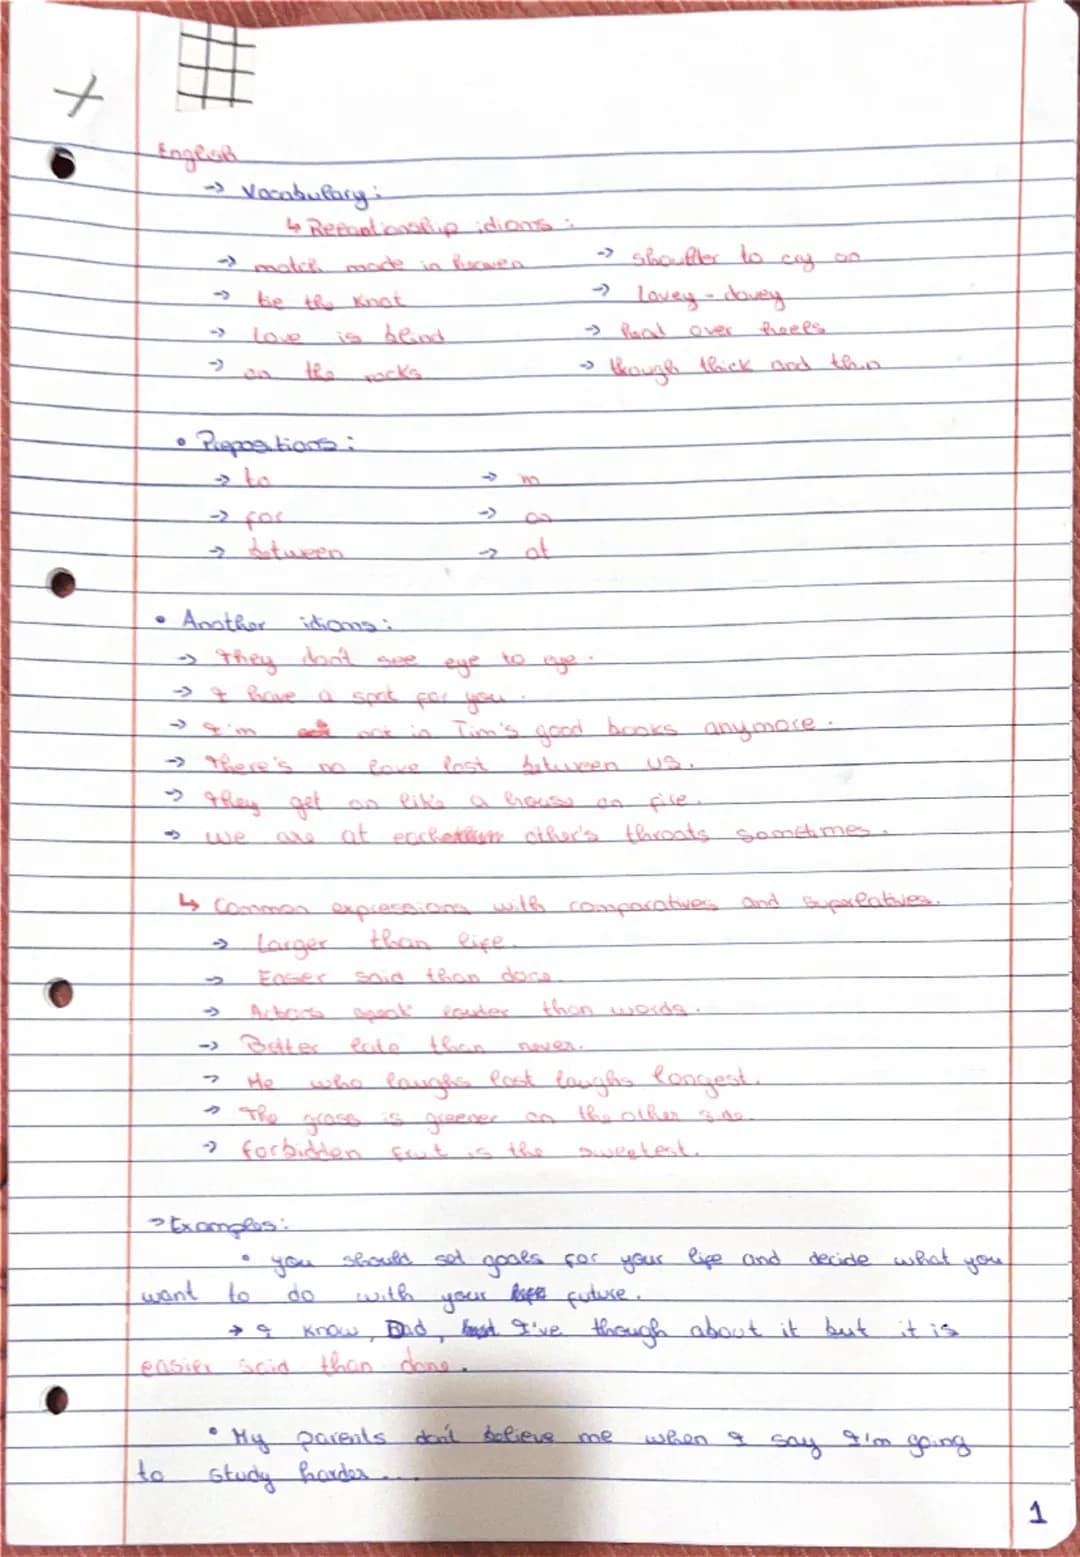 English
→ Vocabulary:
↳ Reeantionship idioms:
→ match made in heaven → shoulder to cry on
→ tie the knot → Lovey-dovey
→ Love is blind → head over heels
→ on the rocks → though thick and thin
• Prepositions:
→ to → in
→ for → on
→ between → at
• Another idioms:
→ They don't see eye to eye.
→ I have a spot for you.
→ I'm not in Tim's good books anymore.
→ There's no love lost between us.
→ They get on like a house on fire.
→ We are at each other's throats sometimes.
↳ Common expressions with comparatives and superlatives.
→ Larger than life.
→ Easier said than done.
→ Actions speak louder than words.
→ Better late than never.
→ He who laughs last laughs longest.
→ The grass is greener on the other side.
→ Forbidden fruit is the sweetest.
→ Examples:
• you should set goals for your life and decide what you
want to do with your future.
→ I know, Dad, I've though about it but it is
easier said than done.
• My parents don't believe me when I say I'm going
to study harder...
1